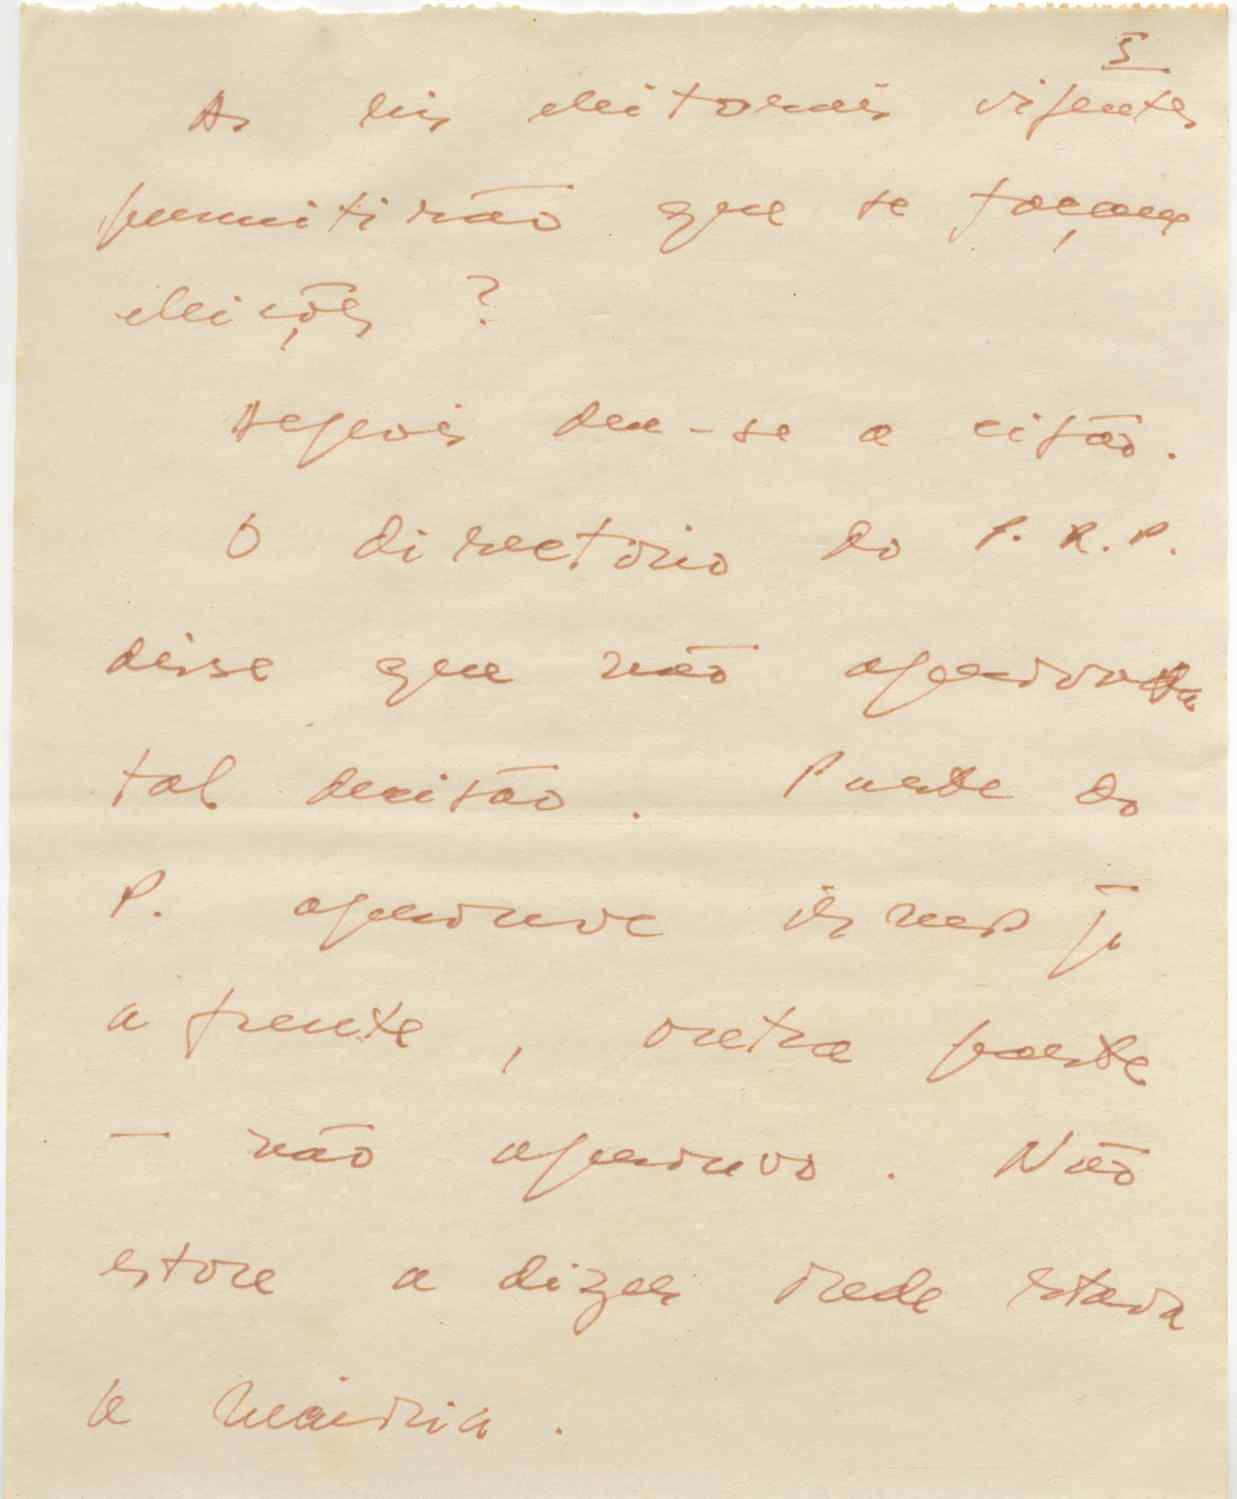 5
As leis eleitorais vigentes
permitirão que se façam
eleições?
Depois deu-se a cisão.
O directório do P. R. P.
disse que não aprovava
tal decisão. Parte do
P. aprovava
a frente, outra parte
— não aprovava. Não
estou a dizer onde estava
a maioria.